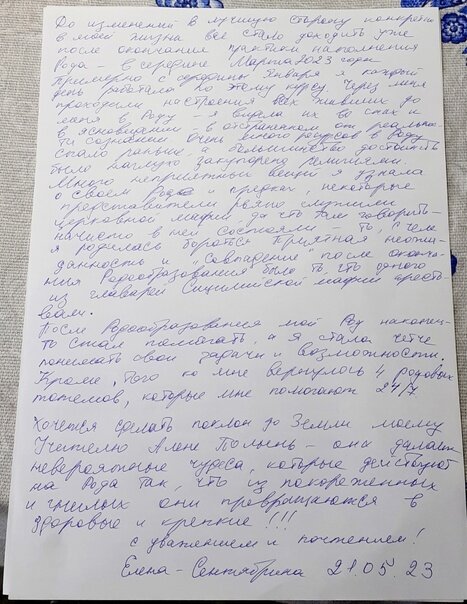 До изменений в лучшую сторону конкретно
в моей жизни все стало доходить уже
после окончания практики наполнения
Рода - в середине Марта 2023 года.
Примерно с середины Января я каждый
день работала по этому курсу. Через меня
проходили настроения всех живших до
меня в Роду - я видела их во снах и
в ясновидении - в отстраненном от реальнос-
ти сознании. Очень много ресурсов в Роду
стало раньше, а большинство достоинств
было наглухо закупорено религиями.
Много неприятных вещей я узнала
о своем Роде и предках, некоторые
представители рьяно служили
церковной мафии, да что там говорить -
начисто в ней состояли - то, с чем
я родилась бороться. Приятная неожи-
данность и "Совпадение" после оконча-
ния Родообразования было то, что одного
из главарей Сицилийской мафии аресто-
вали.
После Родообразования мой Род наконец-
то стал помогать, а я стала четче
понимать свои задачи и возможности.
Кроме того ко мне вернулось 4 родовых
тотемов, которые мне помогают 24/7
Хочется сделать поклон до Земли моему
Учителю Алене Полынь - она делает
невероятные чудеса, которые действуют
на Рода так, что из покореженных
и гнилых они превращаются в
здоровые и крепкие!!!
с уважением и почтением!
Елена - Сентябрина 21.05.23